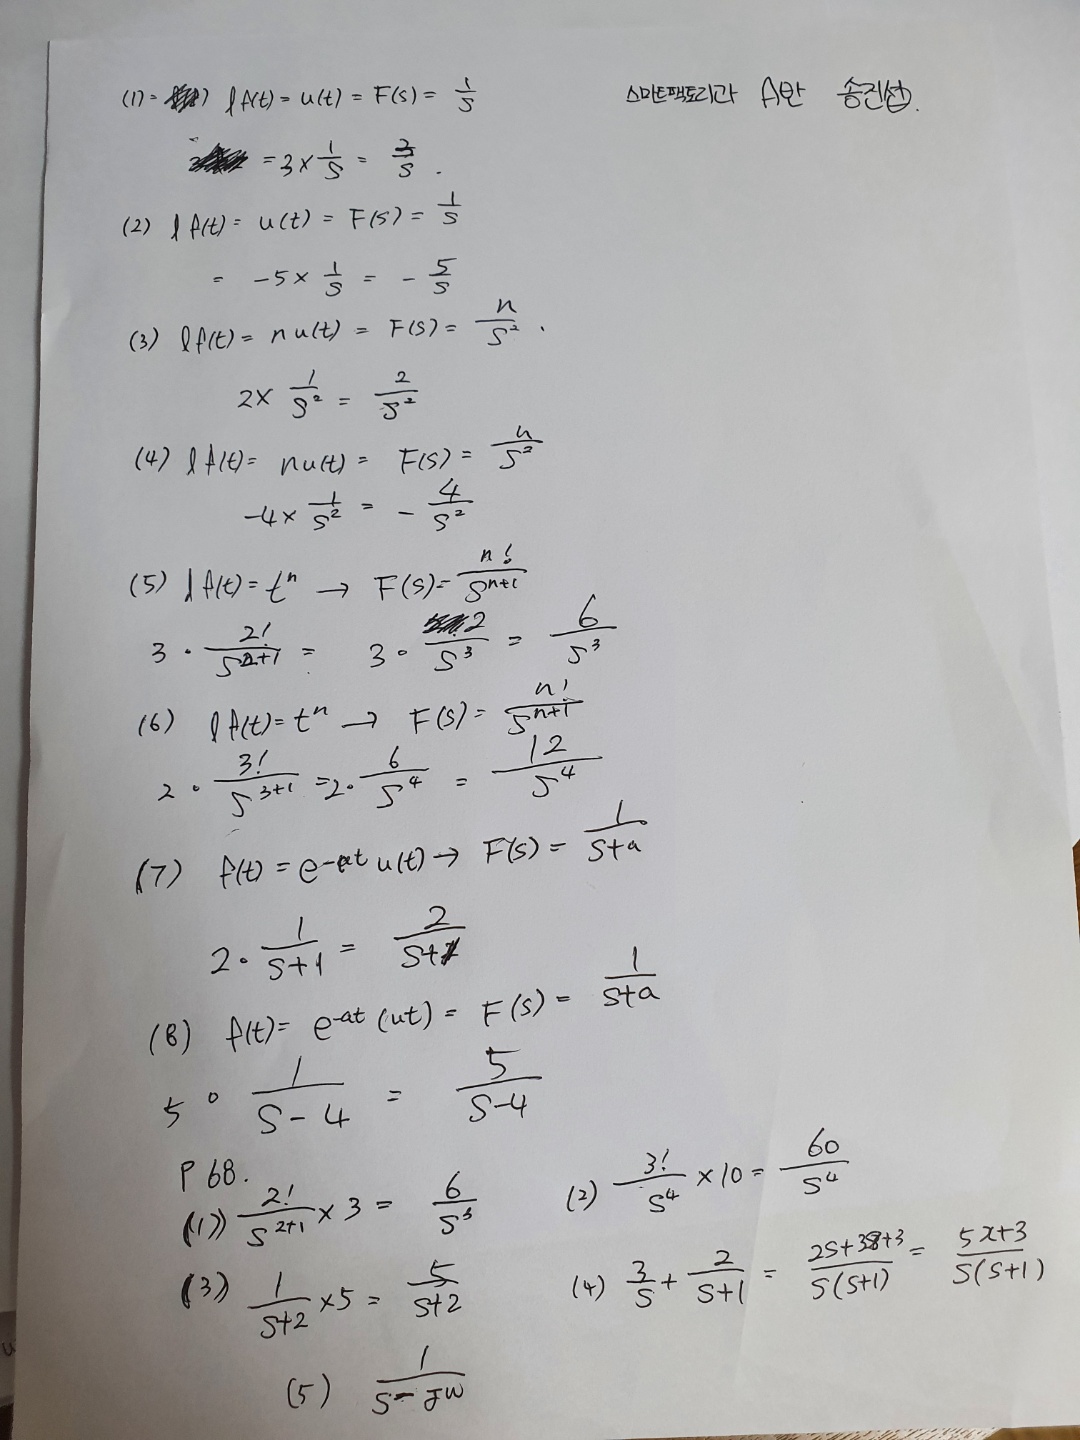 (1) = ) ℓ f(t) = u(t) = F(s) = 1/s 스마트팩토리과 A반 송진섭.
= 3 × 1/s = 3/s .
(2) ℓ f(t) = u(t) = F(s) = 1/s
= -5 × 1/s = - 5/s
(3) ℓ f(t) = n u(t) = F(s) = n/s² .
2 × 1/s² = 2/s²
(4) ℓ f(t) = nu(t) = F(s) = n/s²
-4 × 1/s² = - 4/s²
(5) ℓ f(t) = tⁿ → F(s) = n!/sⁿ⁺¹
3 · 2!/s²⁺¹ = 3 · 2/s³ = 6/s³
(6) ℓ f(t) = tⁿ → F(s) = n!/sⁿ⁺¹
2 · 3!/s³⁺¹ = 2 · 6/s⁴ = 12/s⁴
(7) f(t) = e-at u(t) → F(s) = 1/s+a
2 · 1/s+1 = 2/s+1
(8) f(t) = e-at (ut) = F(s) = 1/s+a
5 · 1/s-4 = 5/s-4
P 68.
(1) 2!/s²⁺¹ × 3 = 6/s³ (2) 3!/s⁴ × 10 = 60/s⁴
(3) 1/s+2 × 5 = 5/s+2 (4) 3/s + 2/s+1 = 2s+3s+3/s(s+1) = 5x+3/s(s+1)
(5) 1/s-jw